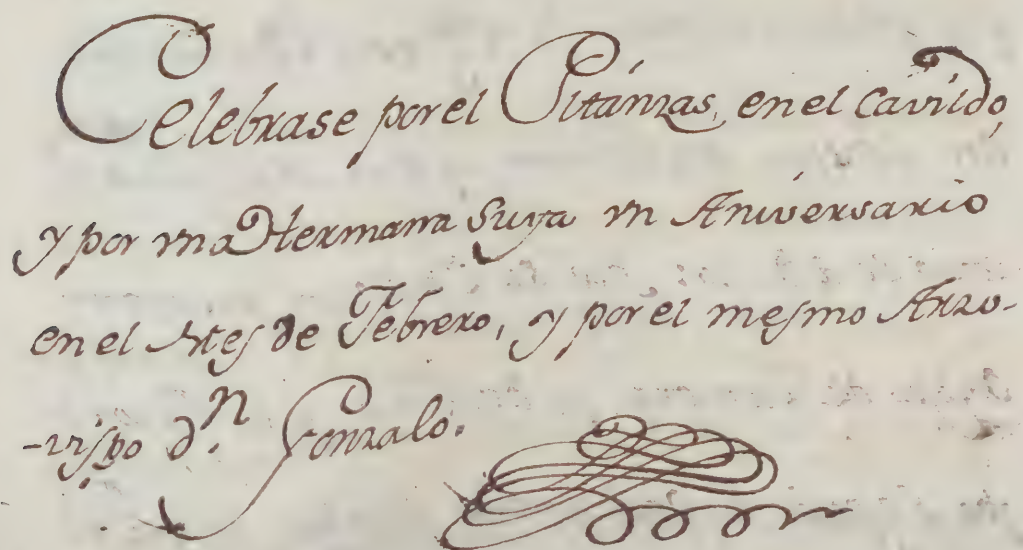 Celebrase por el Pitánzas, en el Cavildo,
y por vna Hermana Suya vn Aniversario
en el Mes de Febrero, y por el mesmo Arzo-
-vispo d.n Gonzalo.